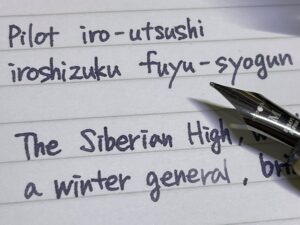 Pilot iro-utsushi
iroshizuku fuyu-syogun
The Siberian High,
a winter general,